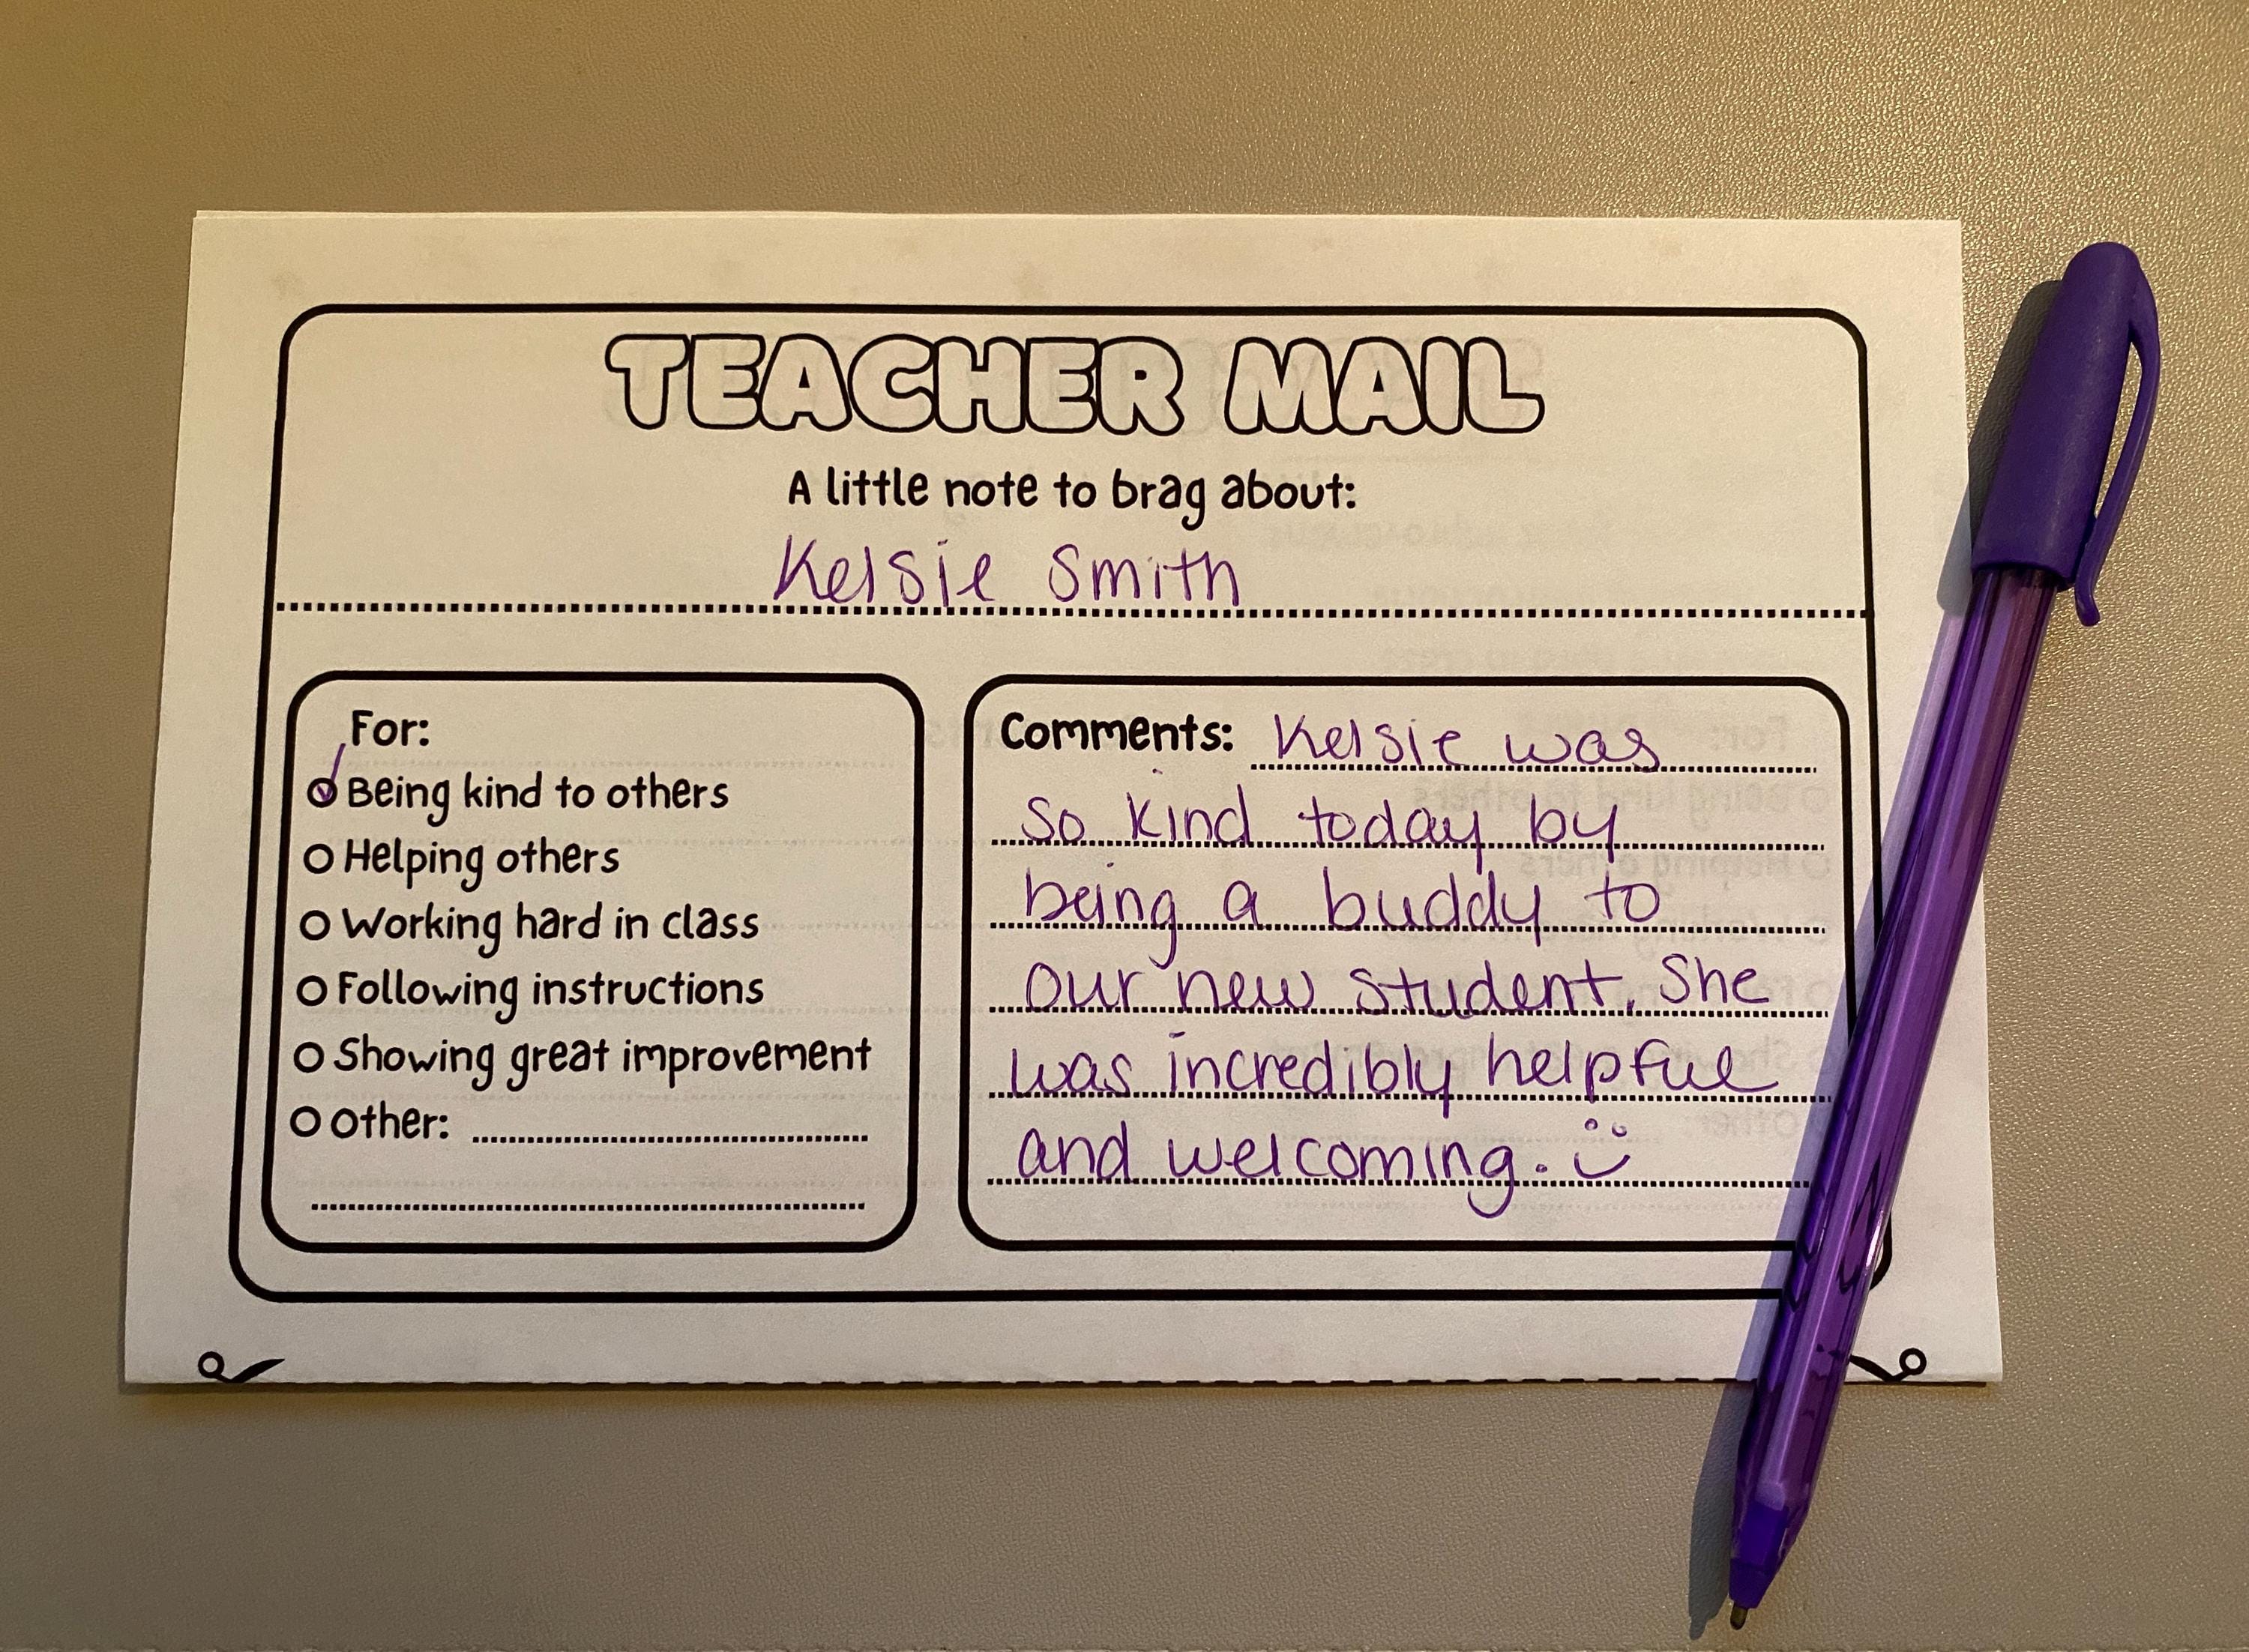 TEACHER MAIL
A little note to brag about:
Kelsie Smith
For:
Being kind to others
Helping others
Working hard in class
Following instructions
Showing great improvement
Other:
Comments: Kelsie was
so kind today by
being a buddy to
our new student. She
was incredibly helpful
and welcoming.